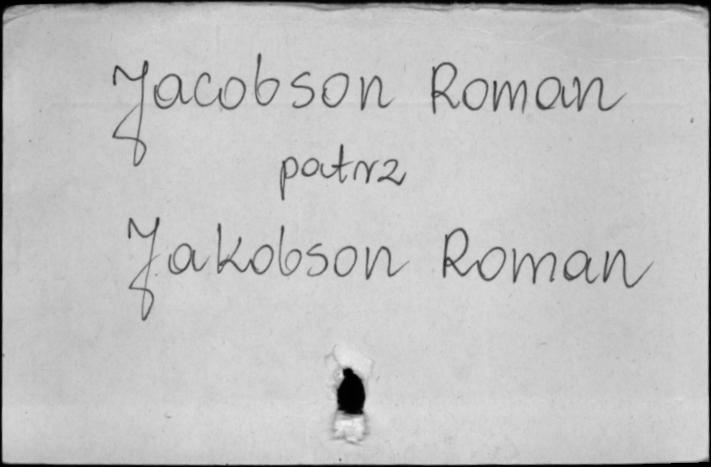 Jacobson Roman
patrz
Jakobson Roman